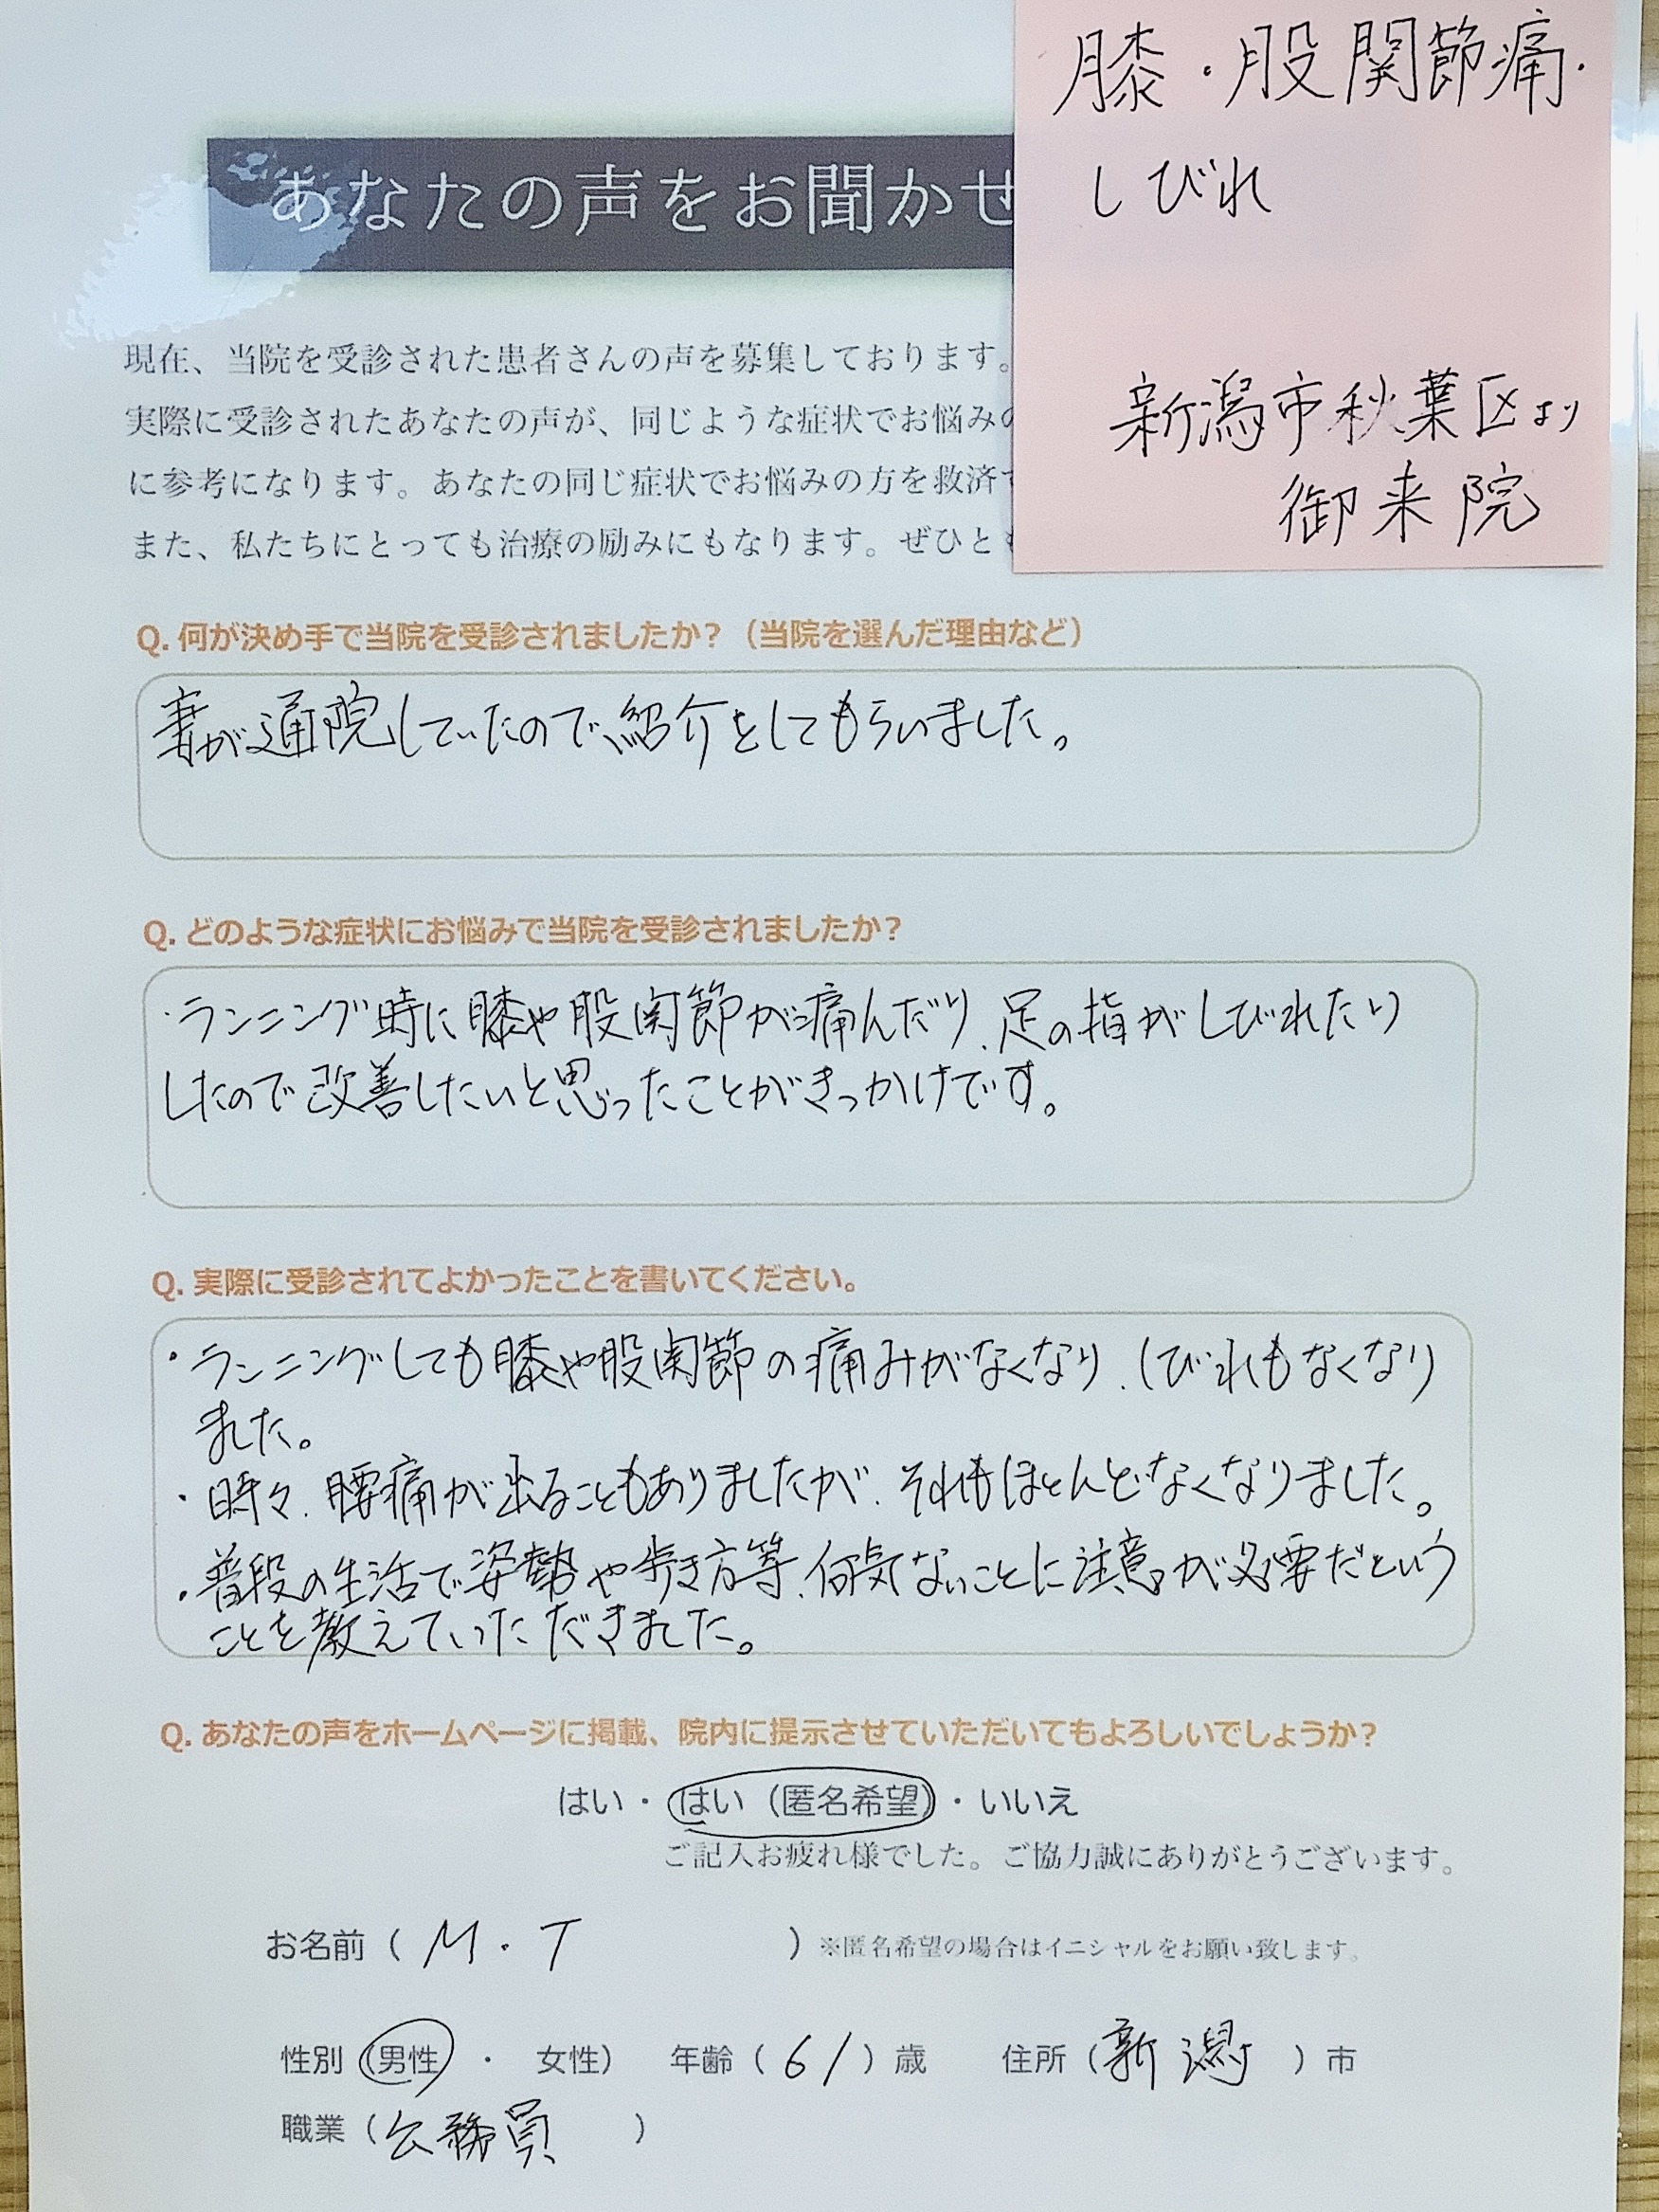 膝・股関節痛・
しびれ
新潟市秋葉区より
御来院
あなたの声をお聞かせ
現在、当院を受診された患者さんの声を募集しております。
実際に受診されたあなたの声が、同じような症状でお悩みの
に参考になります。あなたの同じ症状でお悩みの方を救済で
また、私たちにとっても治療の励みにもなります。ぜひとも
Q. 何が決め手で当院を受診されましたか？（当院を選んだ理由など）
妻が通院していたので、紹介をしてもらいました。
Q. どのような症状にお悩みで当院を受診されましたか？
・ランニング時に膝や股関節が痛んだり、足の指がしびれたり
したので改善したいと思ったことがきっかけです。
Q. 実際に受診されてよかったことを書いてください。
・ランニングしても膝や股関節の痛みがなくなり、しびれもなくなり
ました。
・時々、腰痛が出ることもありましたが、それもほとんどなくなりました。
・普段の生活で姿勢や歩き方等、何気ないことに注意が必要だという
ことを教えていただきました。
Q. あなたの声をホームページに掲載、院内に提示させていただいてもよろしいでしょうか？
はい・はい（匿名希望）・いいえ
ご記入お疲れ様でした。ご協力誠にありがとうございます。
お名前（M・T）※匿名希望の場合はイニシャルをお願い致します。
性別（男性・女性） 年齢（61）歳 住所（新潟）市
職業（公務員）